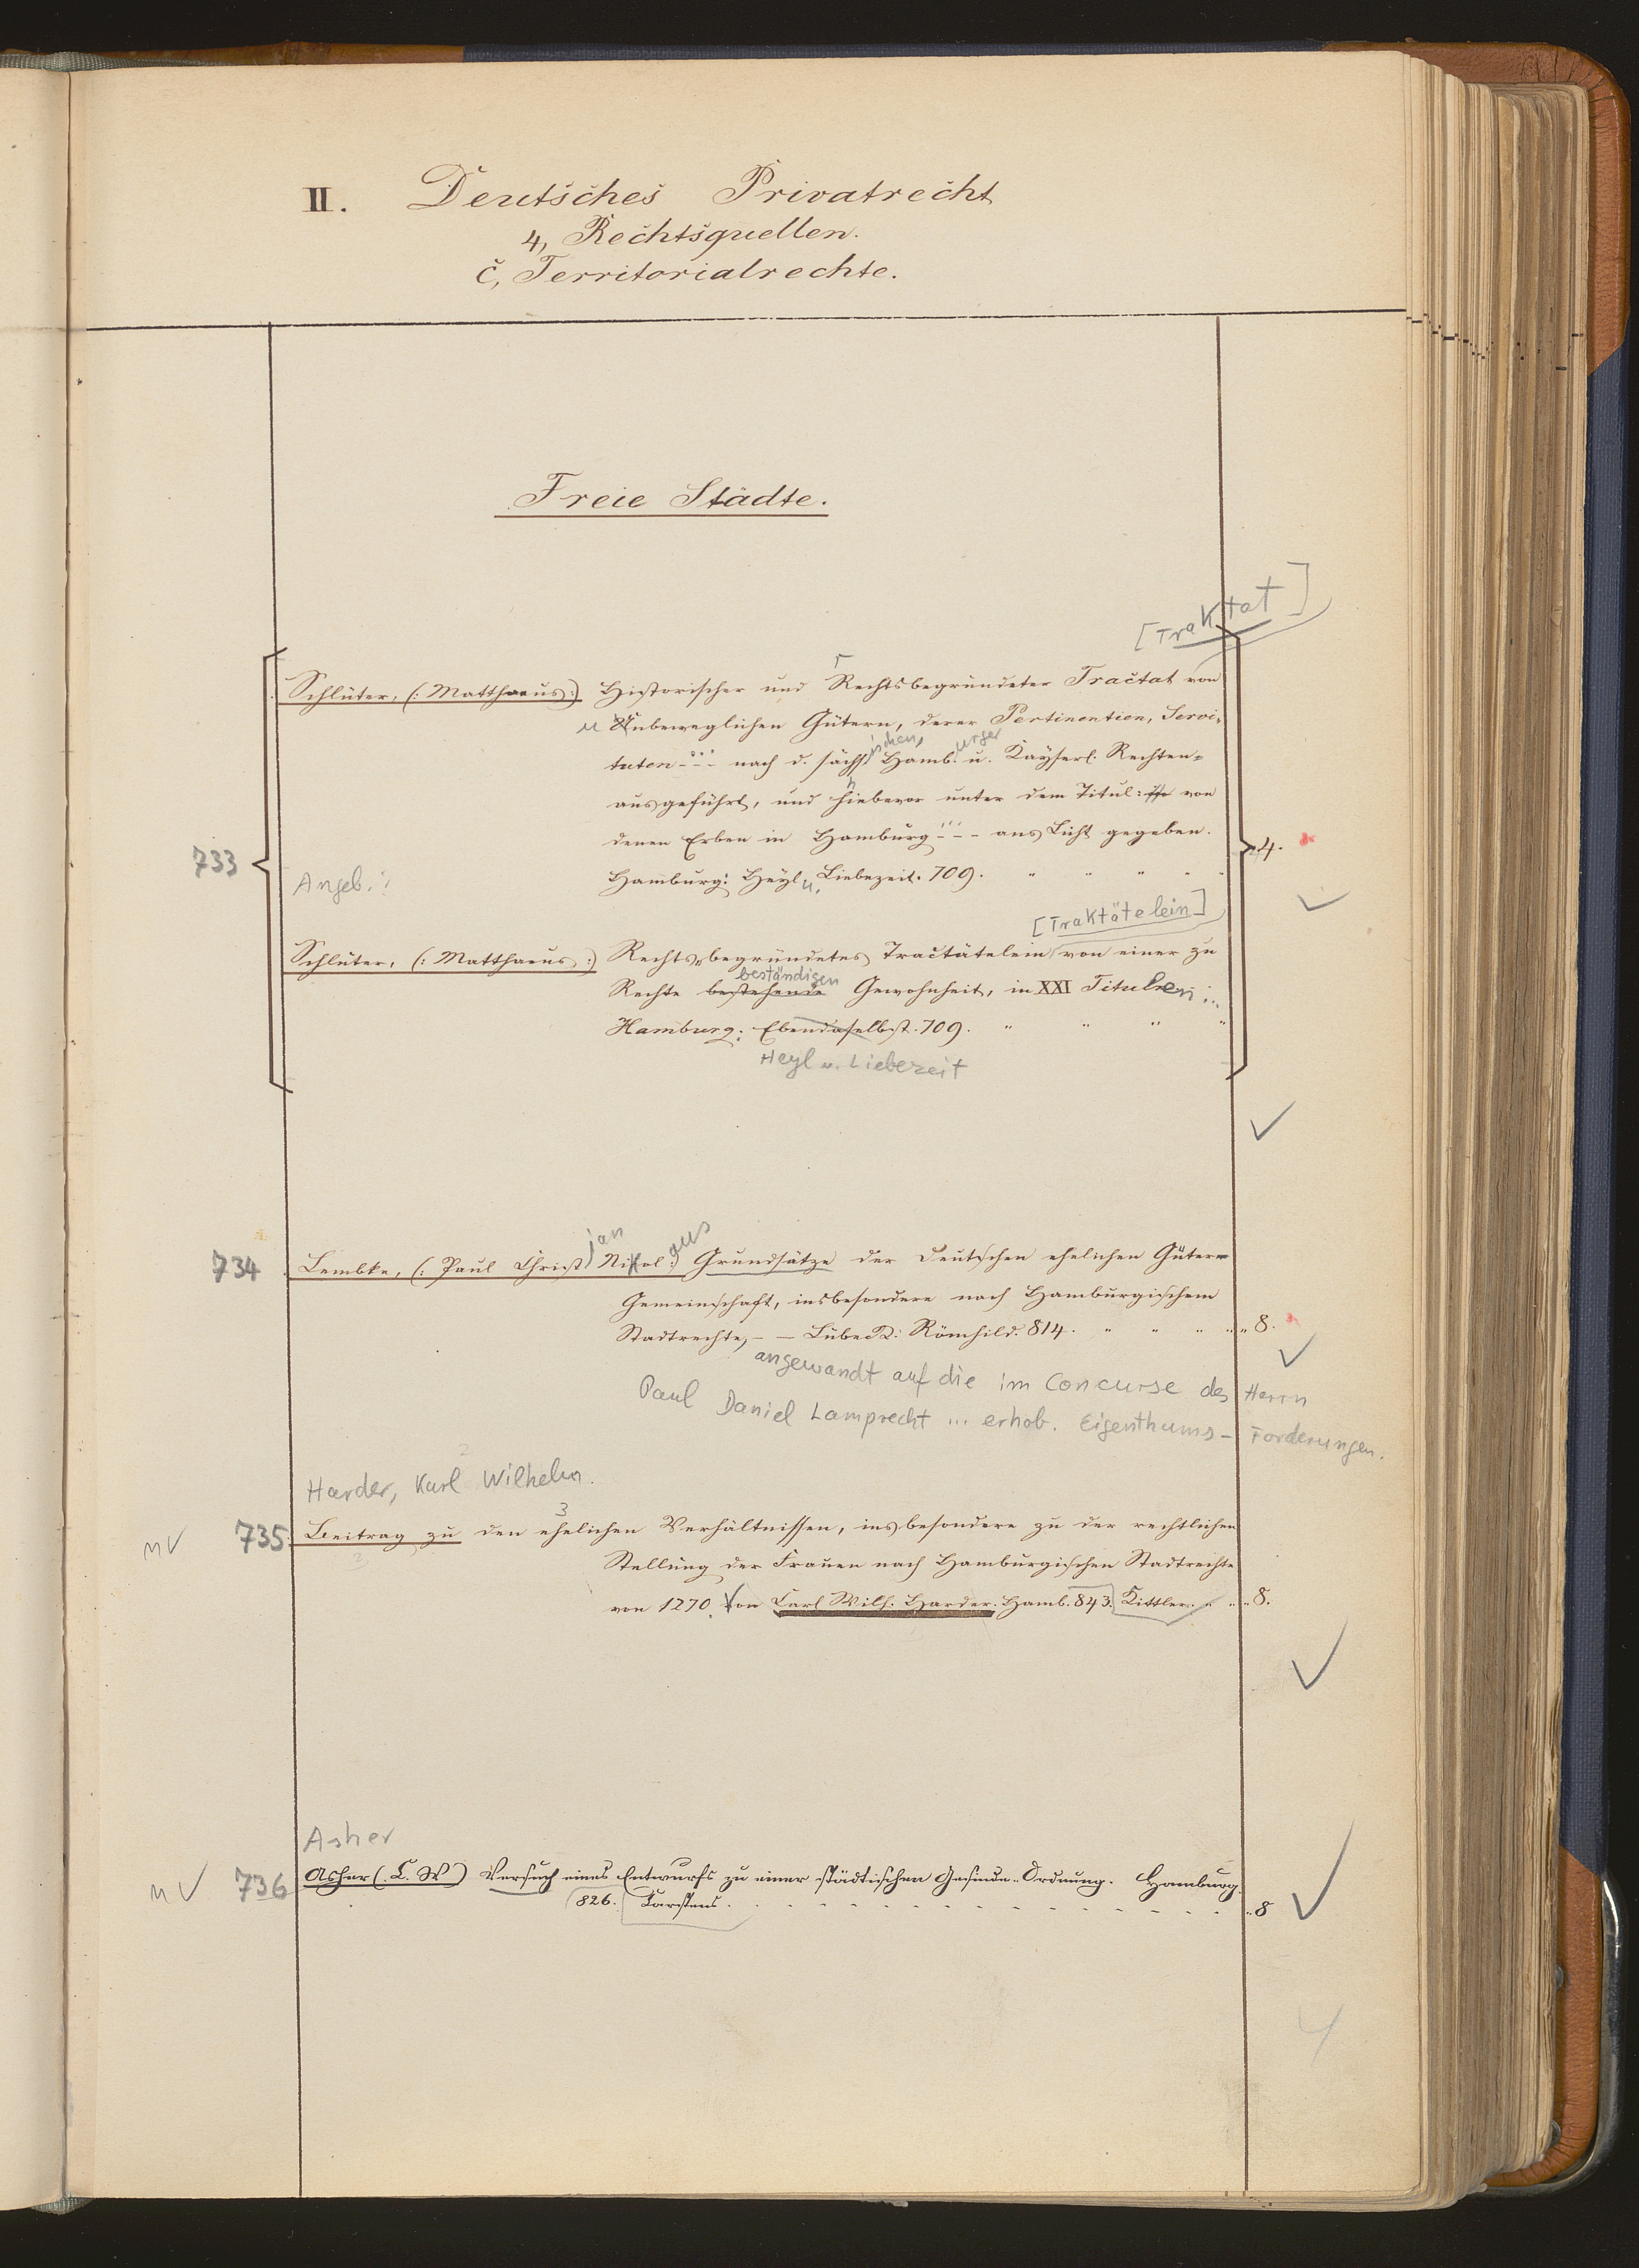 II. Deutsches Privatrecht
4, Rechtsquellen.
c, Territorialrechte.
Freie Städte.
[Traktat]
Schlüter, (: Matthaeus :) Historischer und Rechtsbegründeter Tractat von
u Unbeweglichen Gütern, derer Pertinentien, Servi-
ischen, urger
tuten - - - nach d. sächs. Hamb. u. Kayserl. Rechten-
ausgeführt, und hiebevor unter dem Titul: von
denen Erben in Hamburg - - - ans Licht gegeben.
733 4.
Angeb.: Hamburg: Heyl u. Liebezeit. 709. " " " "
[Traktätelein]
Schlüter, (: Matthaeus :) Rechts-begründetes Tractätelein von einer zu
beständigen
Rechte bestehende Gewohnheit, in XXI Titulen ...
Hamburg: Ebendaselbst. 709. " " " "
Heyl u. Liebezeit
ian aus
734 Lembke, (: Paul Christ) Nikol:) Grundsätze der deutschen ehelichen Güter=
Gemeinschaft, insbesondere nach Hamburgischem
Stadtrechte, - - Lübeck: Römhild. 814. " " " " " 8.
angewandt auf die im Concurse des Herrn
Paul Daniel Lamprecht ... erhob. Eigenthums- Forderungen.
2
Harder, Karl Wilhelm.
3
735 Beitrag zu den ehelichen Verhältnissen, insbesondere zu der rechtlichen
Stellung der Frauen nach Hamburgischen Stadtrechte
von 1270. Von Carl Wilh. Harder. Hamb. 843. Kittler. " " " 8.
Asher
736 Asher (. C. W) Versuch eines Entwurfs zu einer städtischen Gesinde-Ordnung. Hamburg.
826. Carstens. - - - - - - - - - - - - - - - - " 8